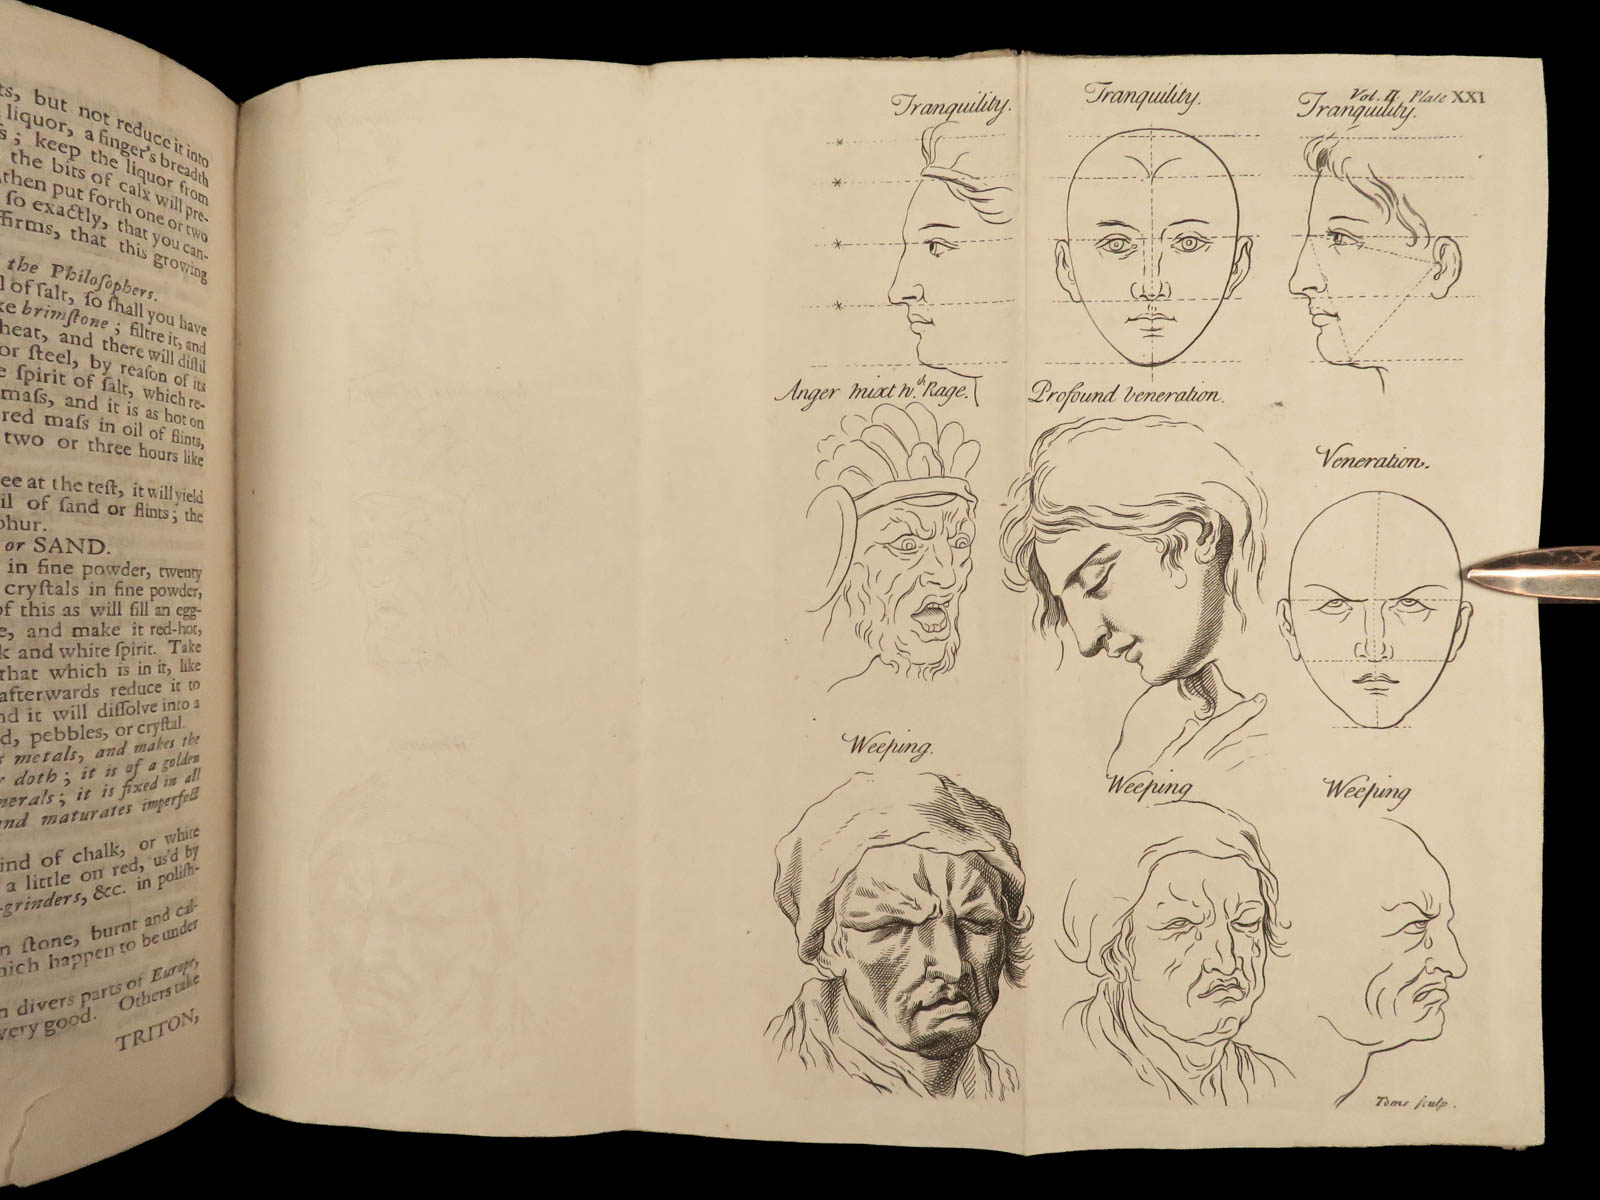 ts, but not reduce it into
liquor, a finger's breadth
s; keep the liquor from
the bits of calx will pre-
then put forth one or two
ſo exactly, that you can-
ffirms, that this growing
the Philoſophers.
l of ſalt, ſo ſhall you have
ke brimſtone; filtre it, and
heat, and there will diſtil
or ſteel, by reaſon of its
e ſpirit of ſalt, which re-
maſs, and it is as hot on
red maſs in oil of flints,
two or three hours like
ee at the teſt, it will yield
il of ſand or flints; the
phur.
or SAND.
in fine powder, twenty
cryſtals in fine powder,
of this as will fill an egg-
e, and make it red-hot,
k and white ſpirit. Take
that which is in it, like
afterwards reduce it to
nd it will diſſolve into a
d, pebbles, or cryſtal.
s metals, and makes the
r doth; it is of a golden
nerals; it is fixed in all
and maturates imperfect
ind of chalk, or white
a little on red, us'd by
-grinders, &c. in poliſh-
n ſtone, burnt and cal-
hich happen to be under
n divers parts of Europe,
very good. Others take
TRITON,
Vol. II. Plate XXI
Tranquility.
Tranquility.
Tranquility.
Anger mixt wth. Rage.
Profound veneration.
Veneration.
Weeping.
Weeping
Weeping
Toms ſculp.